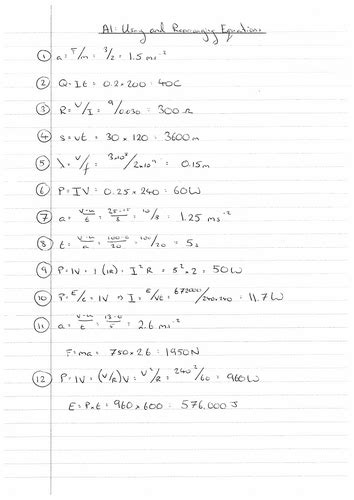 A1: Using and Rearranging Equations
① a = F/m = 3/2 = 1.5 ms⁻²
② Q = It = 0.2 × 200 = 40C
③ R = V/I = 9/0.030 = 300 Ω
④ s = vt = 30 × 120 = 3600m
⑤ λ = v/f = 3×10⁸/2×10⁹ = 0.15m
⑥ P = IV = 0.25 × 240 = 60W
⑦ a = v-u/t = 25-15/8 = 10/8 = 1.25 ms⁻²
⑧ t = v-u/a = 100-0/20 = 100/20 = 5s
⑨ P = IV = I(IR) = I²R = 5² × 2 = 50W
⑩ P = E/t = IV ⇒ I = E/Vt = 672000/240×240 = 11.7W
⑪ a = v-u/t = 13-0/5 = 2.6 ms⁻²
F = ma = 750 × 2.6 = 1950N
⑫ P = IV = (V/R)V = V²/R = 240²/60 = 960W
E = P×t = 960 × 600 = 576,000 J